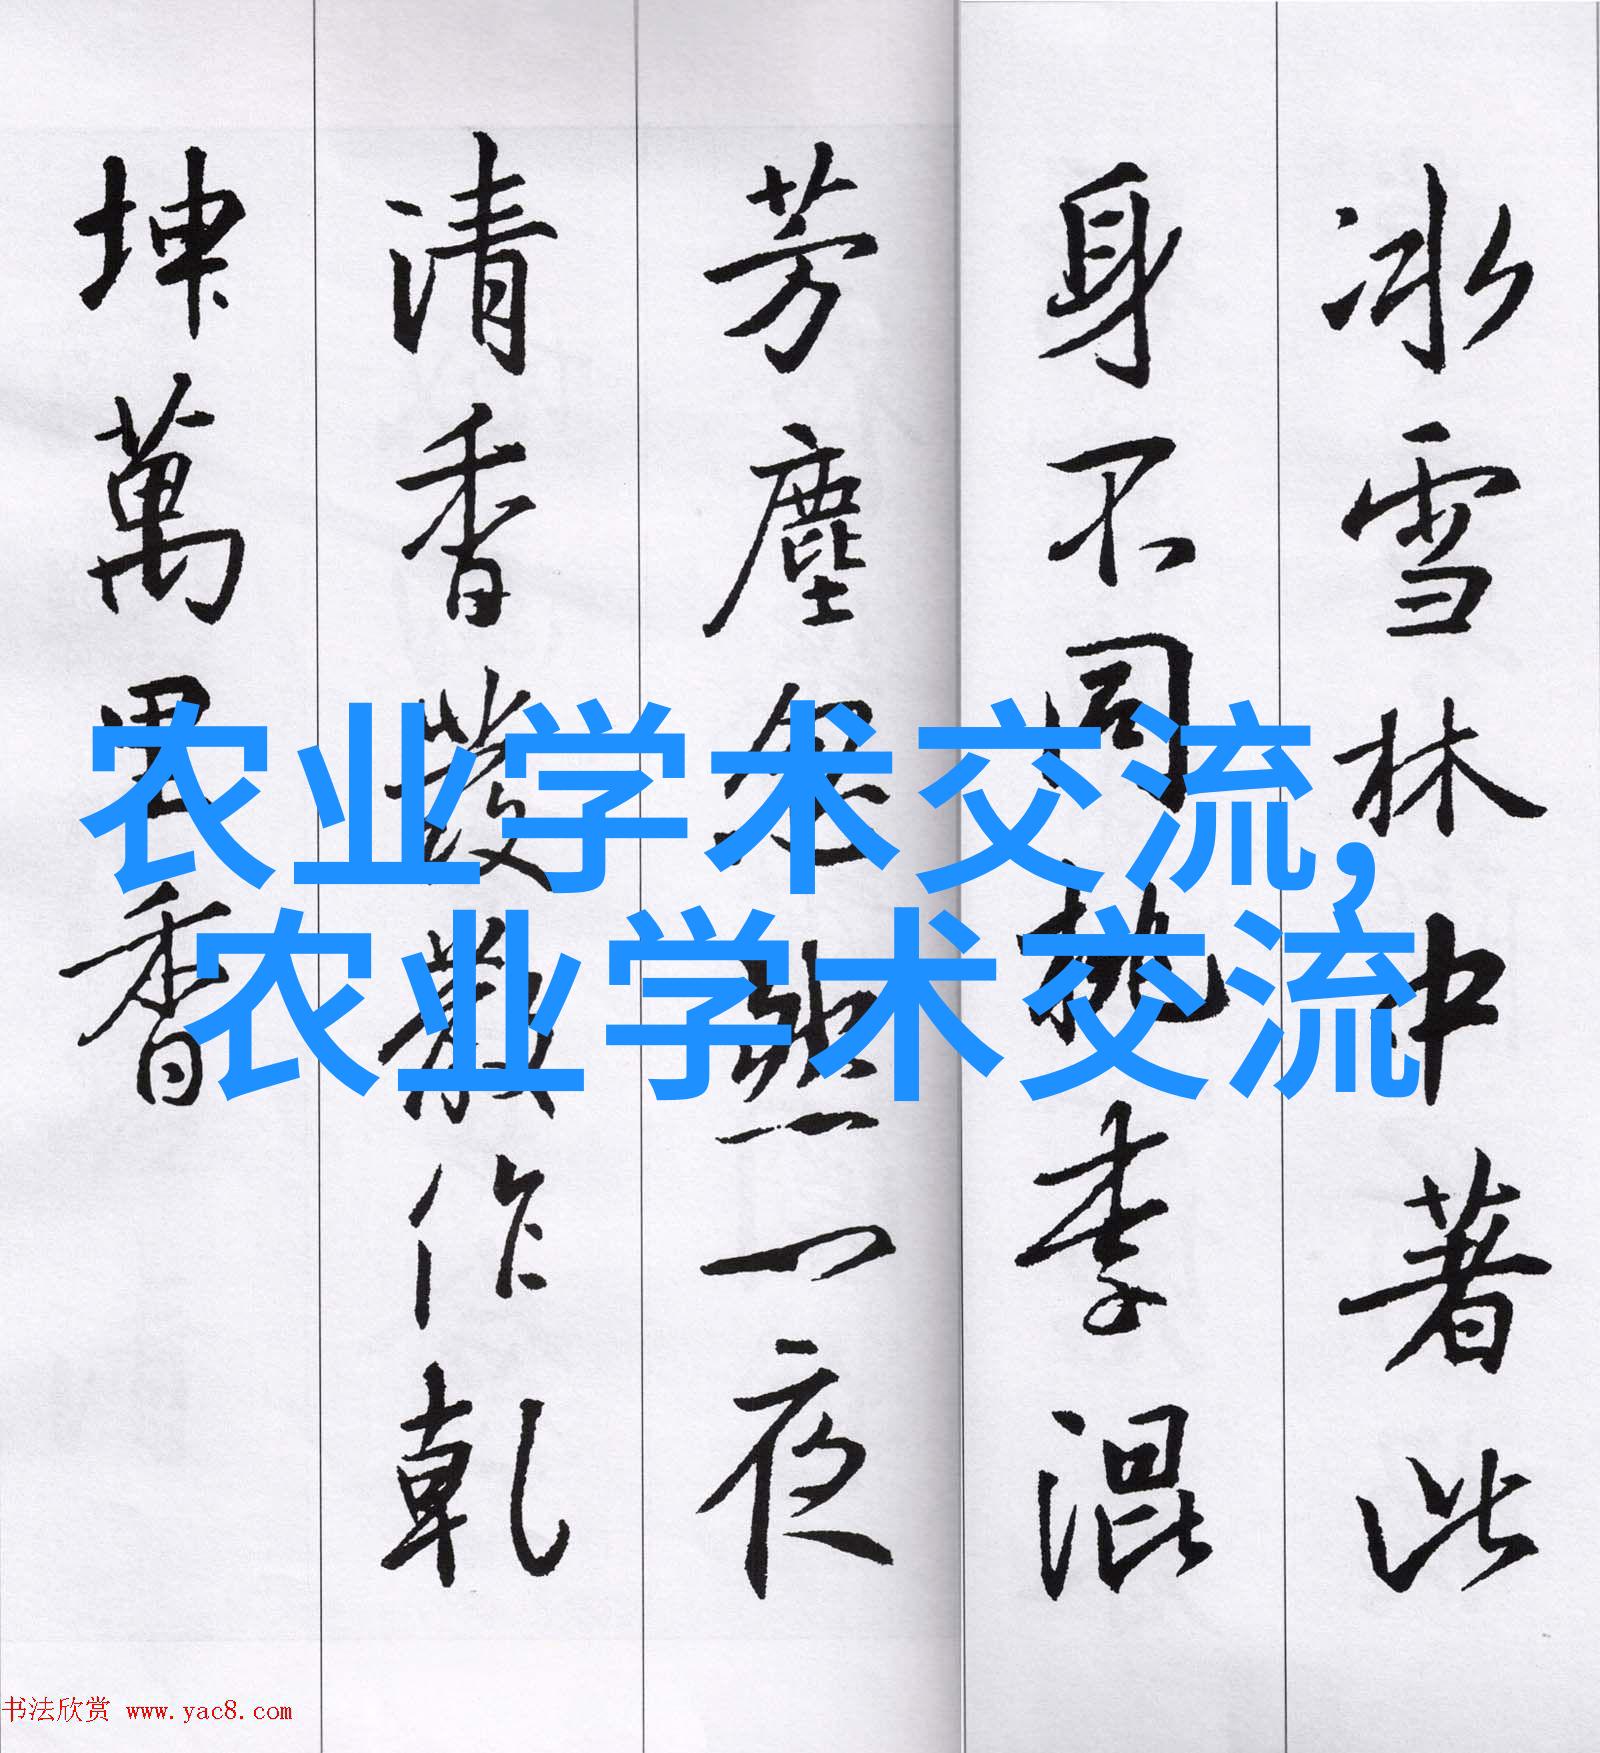 冰雪林中著此
身不同桃李混
芳塵忽然一夜
清香發散作乾
坤萬里香
农业学术交流,
农业学术交流
书法欣赏 www.yac8.com